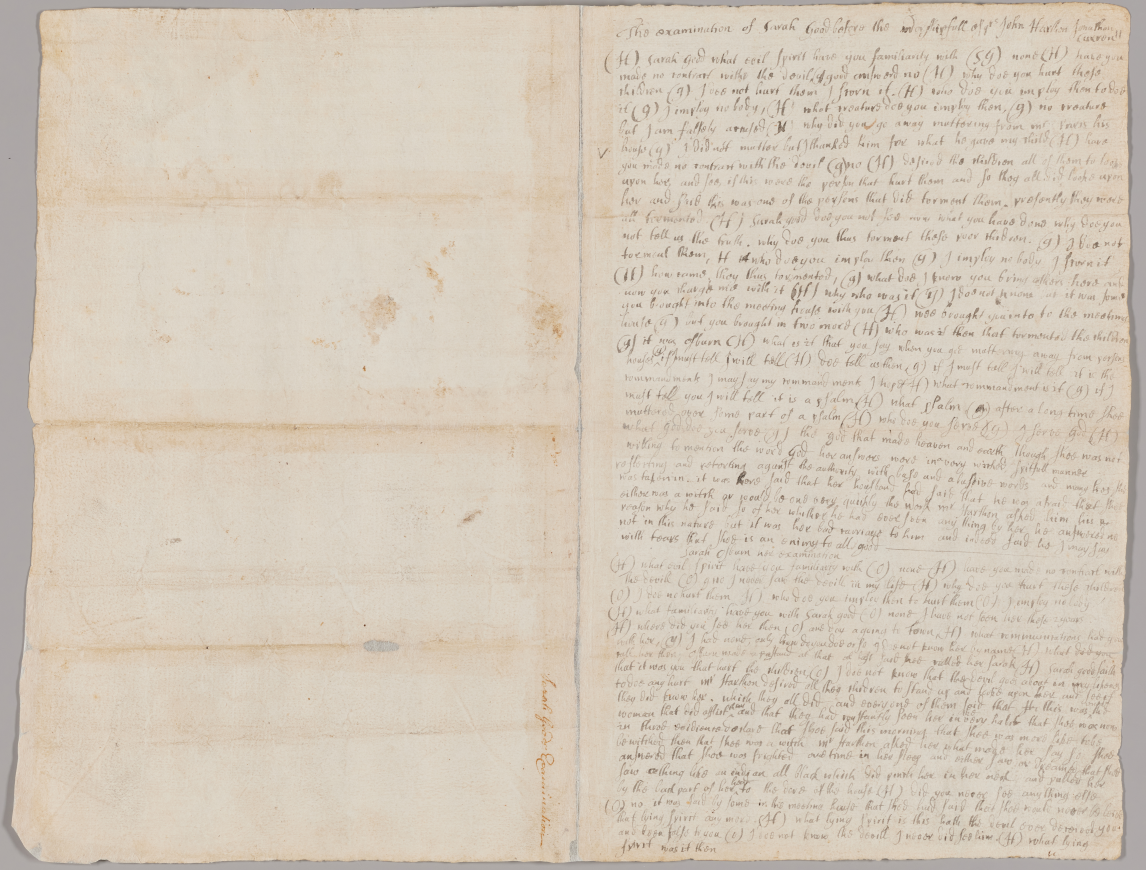 The examination of Sarah Good before the worshipfull Assts John Harthon Jonathan Curren
(H) Sarah Good what evil spirit have you familiarity with (SG) none (H) have you
made no contract withe the devil, g good answered no (H) why doe you hurt these
children (g) I doe not hurt them I scorn it. (H) who doe you imploy then to doe
it (g) I imploy no body, (H) what creature doe you imploy then, (g) no creature
but I am falsely accused (H) why did you go away muttering from mr Parris his
house (g) I did not mutter but I thanked him for what he gave my child (H) have
you made no contract with the devil (g) no (H) desired the children all of them to look
upon her, and see if this were the person that hurt them and so they all did looke upon
her and said this was one of the persons that did torment them. presently they were
all tormented (H) Sarah good doe you not see now what you have done why doe you
not tell us the truth, why doe you thus torment these poor children. (g) I doe not
torment them, H who doe you imploy then (g) I imploy nobody I scorn it
(H) how came they thus tormented, (g) what doe I know you bring others here and
now you charge me with it (H) why who was it (g) I doe not know at it was some
you brought into the meeting house with you (H) wee brought you into the meeting
house (g) but you brought in two more (H) who was it then that tormented the children
(g) it was osburn (H) what is it that you say when you goe muttering away from persons
houses (g) if I must tell I will tell (H) doe tell us then (g) if I must tell I will tell it is the
commandments I may say my commandments I hope (H) what commandment is it (g) if I
must tell you I will tell it is a psalm (H) what psalm (g) after a long time shee
muttered over some part of a psalm (H) who doe you serve (g) I serve god (H)
what god doe you serve (g) the god that made heaven and earth though shee was not
willing to mention the word God her answers were in a very wicked spitfull manner
reflecting and retorting against the authority with base and abusive words and many lies shee
was taken in. it was here said that her husband had said that he was afraid that shee
either was a witch or would be one very quickly the worsh mr Harthon asked him his
reason why he said so of her whether he had ever seen any thing by her he answered no
not in this nature but it was her bad carriage to him and indeed said he I may say
with tears that shee is an enimy to all good
Sarah Osburn her examination
(H) what evil spirit have you familiarity with (O) none (H) have you made no contract with
the devill (O) no I never saw the devill in my life (H) why doe you hurt these children
(O) I doe not hurt them (H) who doe you imploy then to hurt them (O) I imploy no body
(H) what familiarity have you with Sarah good (O) none I have not seen her these 2 years
(H) where did you see her then (O) one day agoing to Town (H) what communications had you
with her, (O) I had none, only how doe you doe or so I did not know her by name (H) what did you
call her then Osburn made a stand at that at last said shee called her Sarah (H) Sarah good saith
that it was you that hurt the children (O) I doe not know that the devil goes about in my likeness
to doe any hurt mr Harthon desired all these children to stand up and look upon her and see if
they did know her which they all did and every one of them said that this was the
woman that did afflict them and that they had constantly seen her in very habit that shee was now
in three evidences declare that shee said this morning that shee was more like to be
bewitched then that shee was a witch mr Harthon asked her what made her say so shee
answered that shee was frighted one time in her sleep and either saw or dreamed that shee
saw a thing like an indian all black which did pinch her in her neck and pulled her
by the back part of her head to the dore of the house (H) did you never see anything else
(O) no. it was said by some in the meeting house that shee had said that shee would never be
that lying spirit any more (H) what lying spirit is this hath the devil ever deceived you
and been false to you (O) I doe not know the devill I never did see him (H) what lying
spirit was it then
Sarah Goods Examination